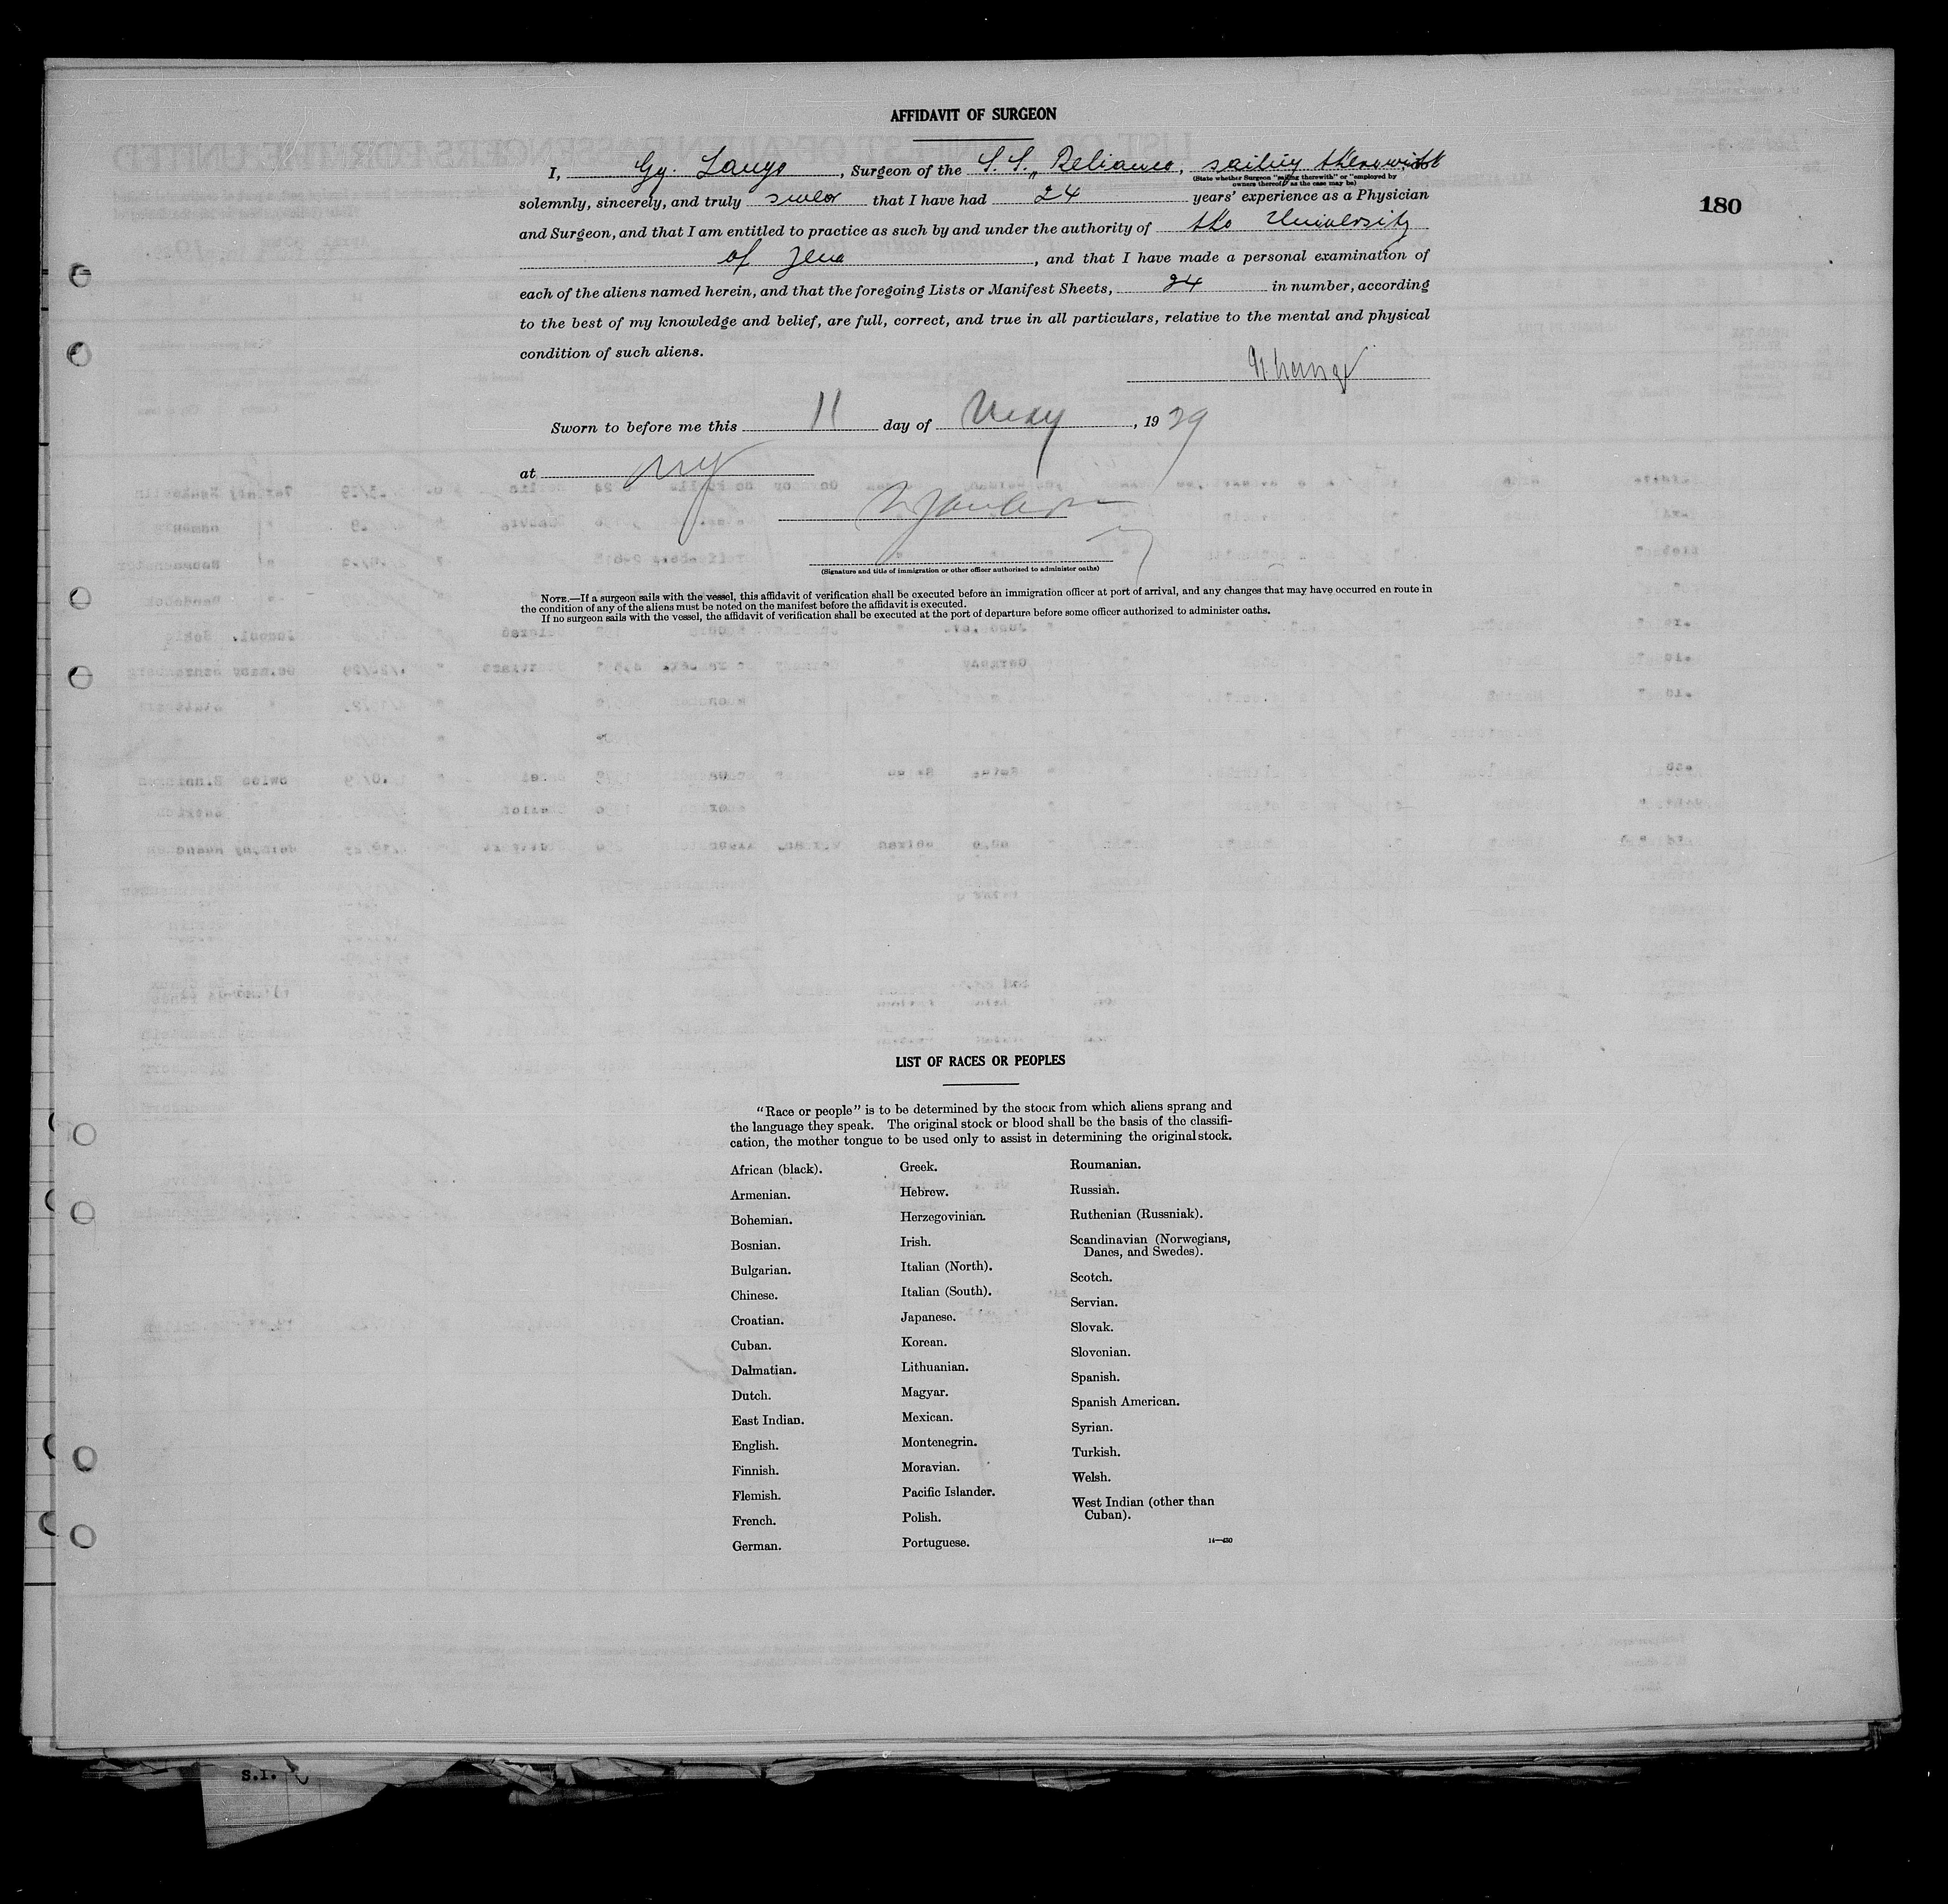 AFFIDAVIT OF SURGEON
I, Gg. Lange, Surgeon of the S.S. „Reliance, sailing therewith
(State whether Surgeon "sailing therewith" or "employed by
owners thereof," as the case may be)
solemnly, sincerely, and truly swear that I have had 24 years' experience as a Physician
180
and Surgeon, and that I am entitled to practice as such by and under the authority of the University
of Jena, and that I have made a personal examination of
each of the aliens named herein, and that the foregoing Lists or Manifest Sheets, 24 in number, according
to the best of my knowledge and belief, are full, correct, and true in all particulars, relative to the mental and physical
condition of such aliens.
Sworn to before me this 11 day of May, 1929
at NY
(Signature and title of immigration or other officer authorized to administer oaths)
NOTE.—If a surgeon sails with the vessel, this affidavit of verification shall be executed before an immigration officer at port of arrival, and any changes that may have occurred en route in
the condition of any of the aliens must be noted on the manifest before the affidavit is executed.
If no surgeon sails with the vessel, the affidavit of verification shall be executed at the port of departure before some officer authorized to administer oaths.
LIST OF RACES OR PEOPLES
"Race or people" is to be determined by the stock from which aliens sprang and
the language they speak. The original stock or blood shall be the basis of the classifi-
cation, the mother tongue to be used only to assist in determining the original stock.
African (black).
Armenian.
Bohemian.
Bosnian.
Bulgarian.
Chinese.
Croatian.
Cuban.
Dalmatian.
Dutch.
East Indian.
English.
Finnish.
Flemish.
French.
German.
Greek.
Hebrew.
Herzegovinian.
Irish.
Italian (North).
Italian (South).
Japanese.
Korean.
Lithuanian.
Magyar.
Mexican.
Montenegrin.
Moravian.
Pacific Islander.
Polish.
Portuguese.
Roumanian.
Russian.
Ruthenian (Russniak).
Scandinavian (Norwegians,
Danes, and Swedes).
Scotch.
Servian.
Slovak.
Slovenian.
Spanish.
Spanish American.
Syrian.
Turkish.
Welsh.
West Indian (other than
Cuban).
14—430
S.I.